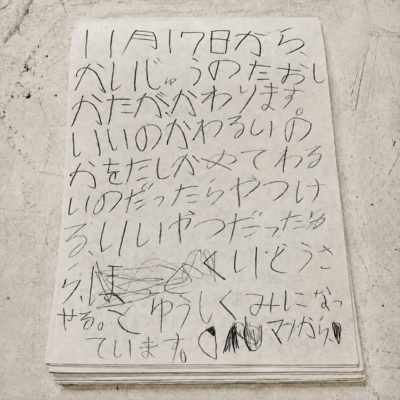 11月17日から、
かいじゅうのたおし
かたが、かわります。
いいのかわるいの
かをたしかめてわる
いのだったらやつけ
る、いいやつだったか
ほ くいどうさ
せる。こゆうしくみになっ
ています。